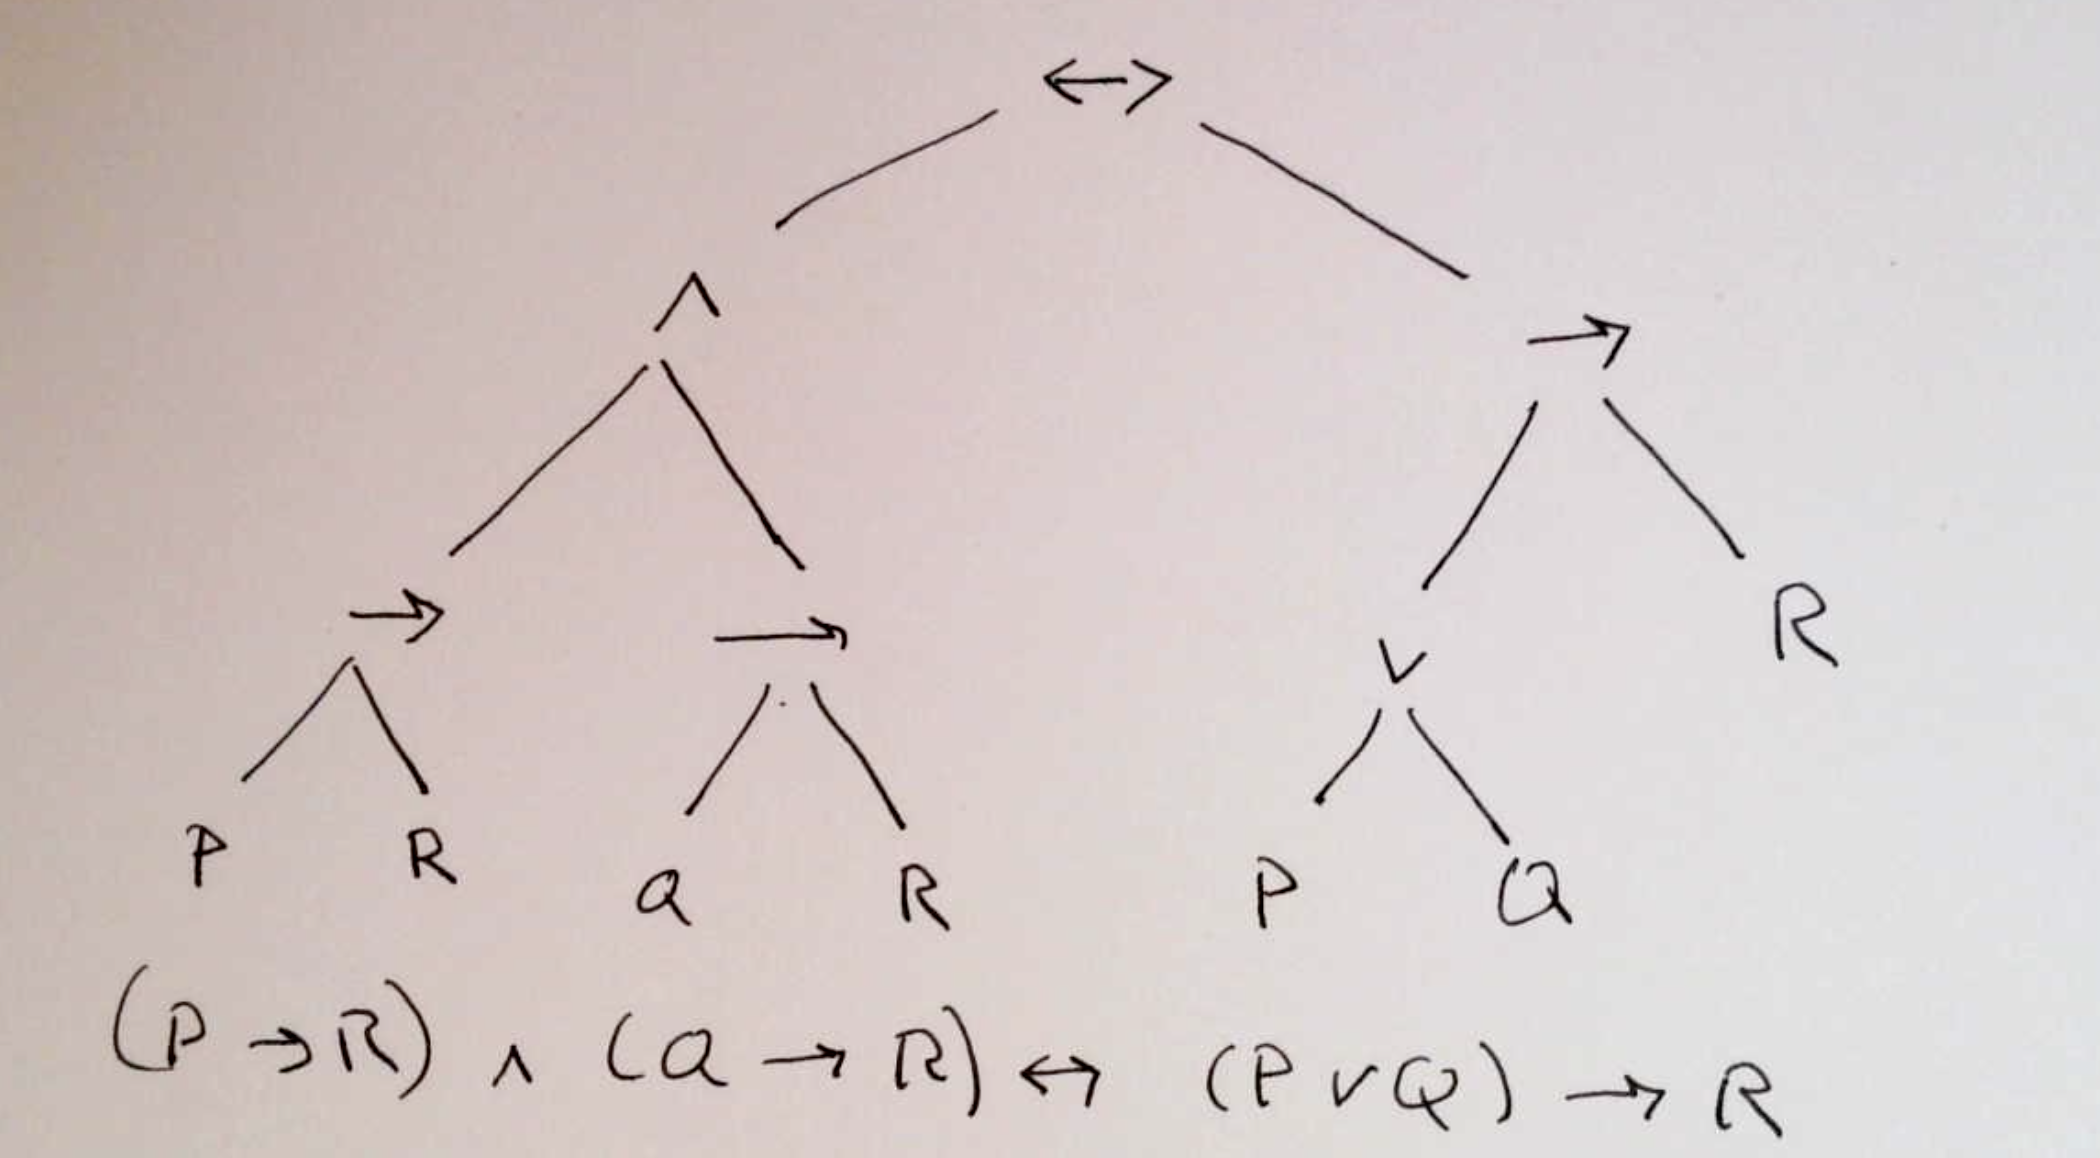 ↔
∧ →
→ → ∨ R
P R Q R P Q
(P → R) ∧ (Q → R) ↔ (P ∨ Q) → R